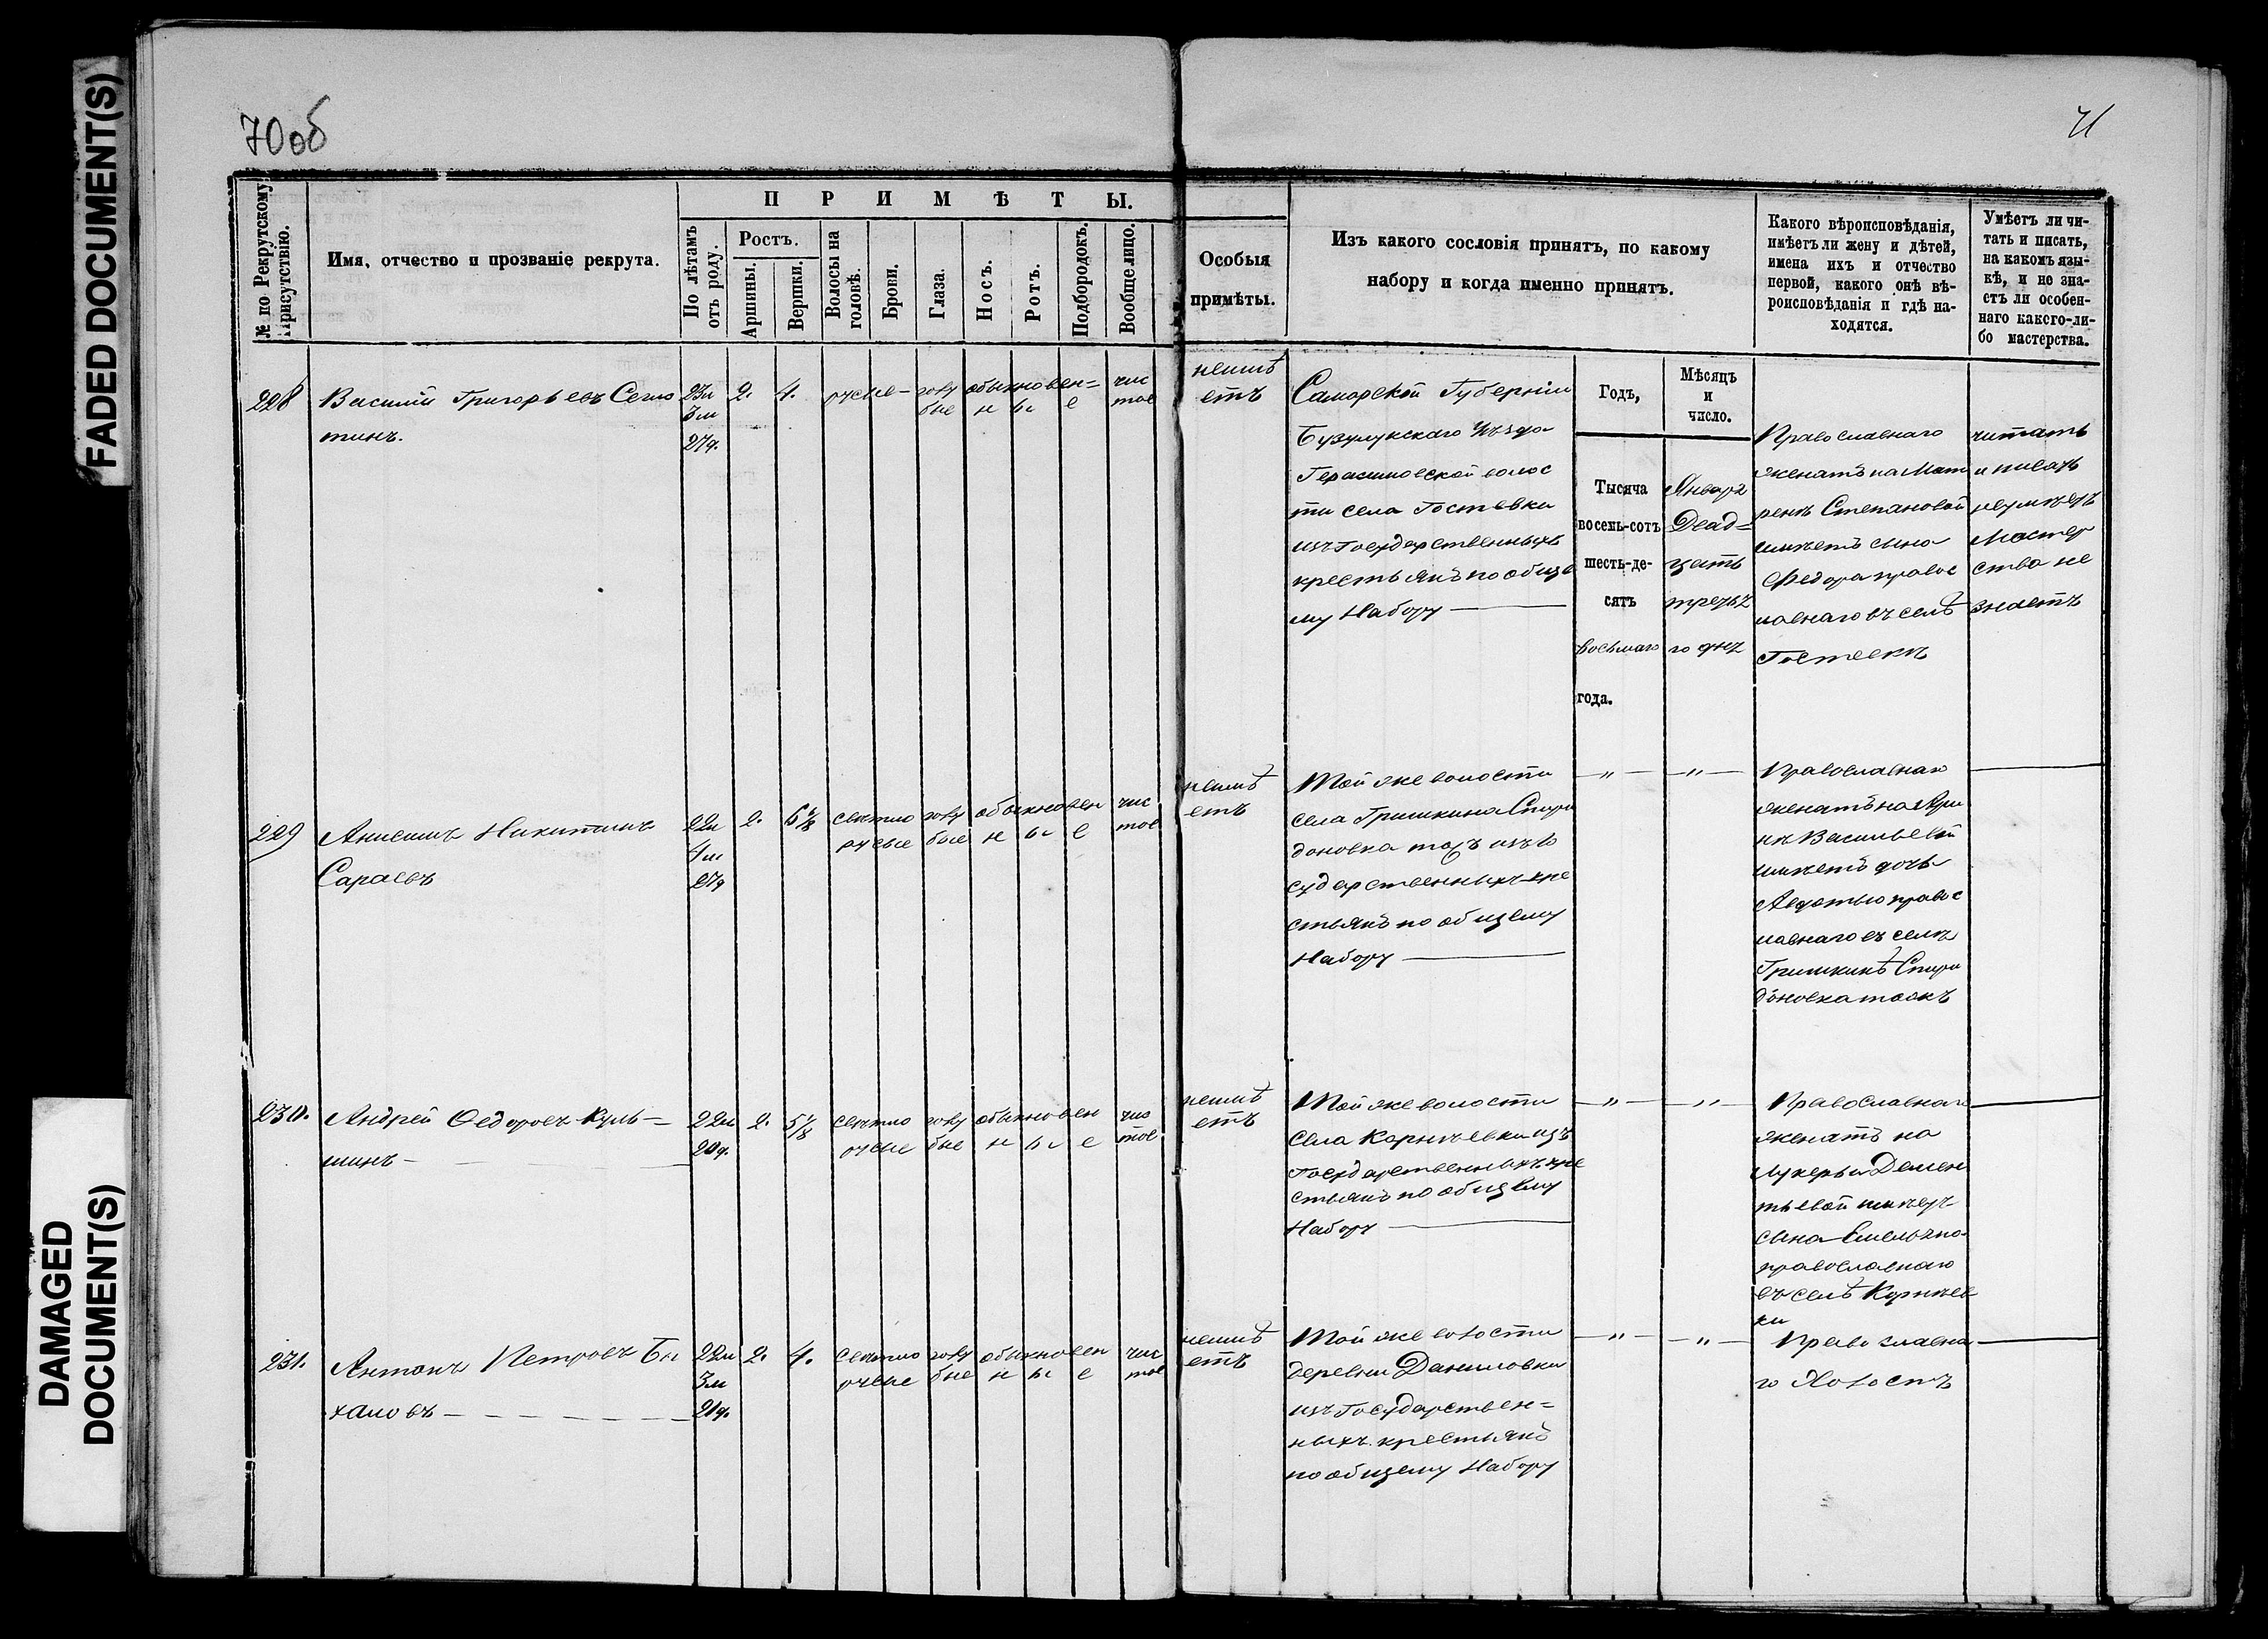 FADED DOCUMENT(S)
DAMAGED
DOCUMENT(S)
70об
71
№ по Рекрутскому
Присутствію.
Имя, отчество и прозваніе рекрута.
ПРИМѢТЫ.
По лѣтамъ
отъ роду.
Ростъ.
Аршины.
Вершки.
Волосы на
головѣ.
Брови.
Глаза.
Носъ.
Ротъ.
Подбородокъ.
Вообще лицо.
Особыя
примѣты.
Изъ какого сословія принятъ, по какому
набору и когда именно принятъ.
Какого вѣроисповѣданія,
имѣетъ ли жену и дѣтей,
имена ихъ и отчество
первой, какого онѣ вѣ-
роисповѣданія и гдѣ на-
ходятся.
Умѣетъ ли чи-
тать и писать,
на какомъ язы-
кѣ, и не зна-
етъ ли особен-
наго какого-ли-
бо мастерства.
228
Василій Григорьевъ
тинъ.
23л
3м
27д.
2.
4.
русые
голу
бые
обыкновен=
н ы е
чис
тое
неимѣ
етъ
Самарской Губерніи
Бузулукскаго Уѣзда
Герасимовской волос
ти села Гостевки
изъ Государственныхъ
крестьянъ по обще
му Набору
Годъ,
Тысяча
восемь-сотъ
шесть-де-
сятъ
восьмаго
года.
Мѣсяцъ
и
число.
Января
Двад=
цать
третья
го дня
Православнаго
женатъ на Мат
ренѣ Степановой
имѣетъ сына
Федора правос
лавнаго въ селѣ
Гостевкѣ
читать
и писать
неумѣетъ
Мастер
ства не
знаетъ
229
Анисимъ Никитинъ
Сараевъ
22л
4м
27д
2.
6 1/8
свѣтло
русые
голу
бые
обыкновен
н ы е
чис
тое
неимѣ
етъ
Той же волости
села Гришкина Спири
доновка тожъ изъ Го
сударственныхъ кре
стьянъ по общему
Набору
— " —
— " —
Православнаго
женатъ на Ари
нѣ Васильевой
имѣетъ дочь
Авдотью правос
лавнаго въ селѣ
Гришкинѣ Спири
доновка тожъ
230.
Андрей Федоровъ Куль-
шинъ -
22л
20д.
2.
5 1/8
свѣтло
русые
голу
бые
обыкновен
н ы е
чис
тое
неимѣ
етъ
Той же волости
Села Корнѣевки изъ
Государственныхъ кре
стьянъ по общему
Набору
— " —
— " —
Православнаго
женатъ на
Лукерьи Демен
тьевой имѣетъ
сына Емельяна
православнаго
въ селѣ Корнѣев
ки
231.
Антонъ Петровъ Ба
халовъ
22л
3м
21д.
2.
4.
свѣтло
русые
голу
бые
обыкновен
н ы е
чис
тое
неимѣ
етъ
Той же волости
деревни Даниловки
изъ Государствен=
ныхъ крестьянъ
по общему Набору
— " —
— " —
Православна
го Холостъ